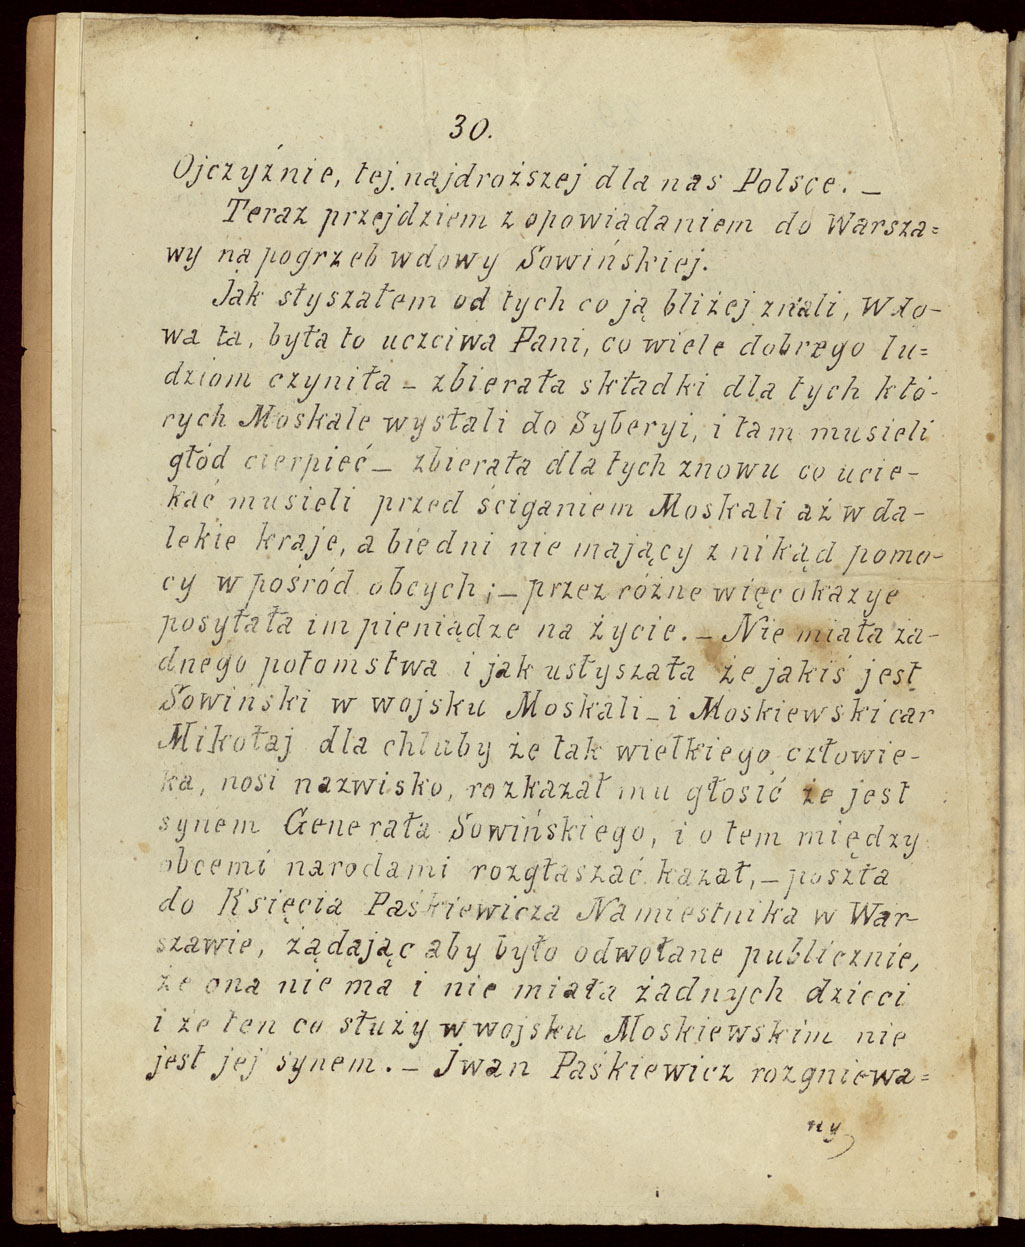 30.
Ojczyźnie, tej najdroższej dla nas Polsce. —
Teraz przejdziem z opowiadaniem do Warsza=
wy na pogrzeb wdowy Sowińskiej.
Jak słyszałem od tych co ją bliżej znali, Wdo-
wa ta, była to uczciwa Pani, co wiele dobrego lu=
dziom czyniła – zbierała składki dla tych któ-
rych Moskale wysłali do Syberyi, i tam musieli
głód cierpieć – zbierała dla tych znowu co ucie-
kać musieli przed ściganiem Moskali aż w da-
lekie kraje, a biedni nie mający z nikąd pomo-
cy w pośród obcych; – przez różne więc okazye
posyłała im pieniądze na życie. – Nie miała ża-
dnego potomstwa i jak usłyszała że jakiś jest
Sowiński w wojsku Moskali – i Moskiewski car
Mikołaj dla chluby że tak wielkiego człowie-
ka, nosi nazwisko, rozkazał mu głosić że jest
synem Generała Sowińskiego, i o tem między
obcemi narodami rozgłaszać kazał, – poszła
do Księcia Paśkiewicza Namiestnika w War-
szawie, żądając aby było odwołane publicznie,
że ona nie ma i nie miała żadnych dzieci
i że ten co służy w wojsku Moskiewskim nie
jest jej synem. – Iwan Paśkiewicz rozgniewa=
ny